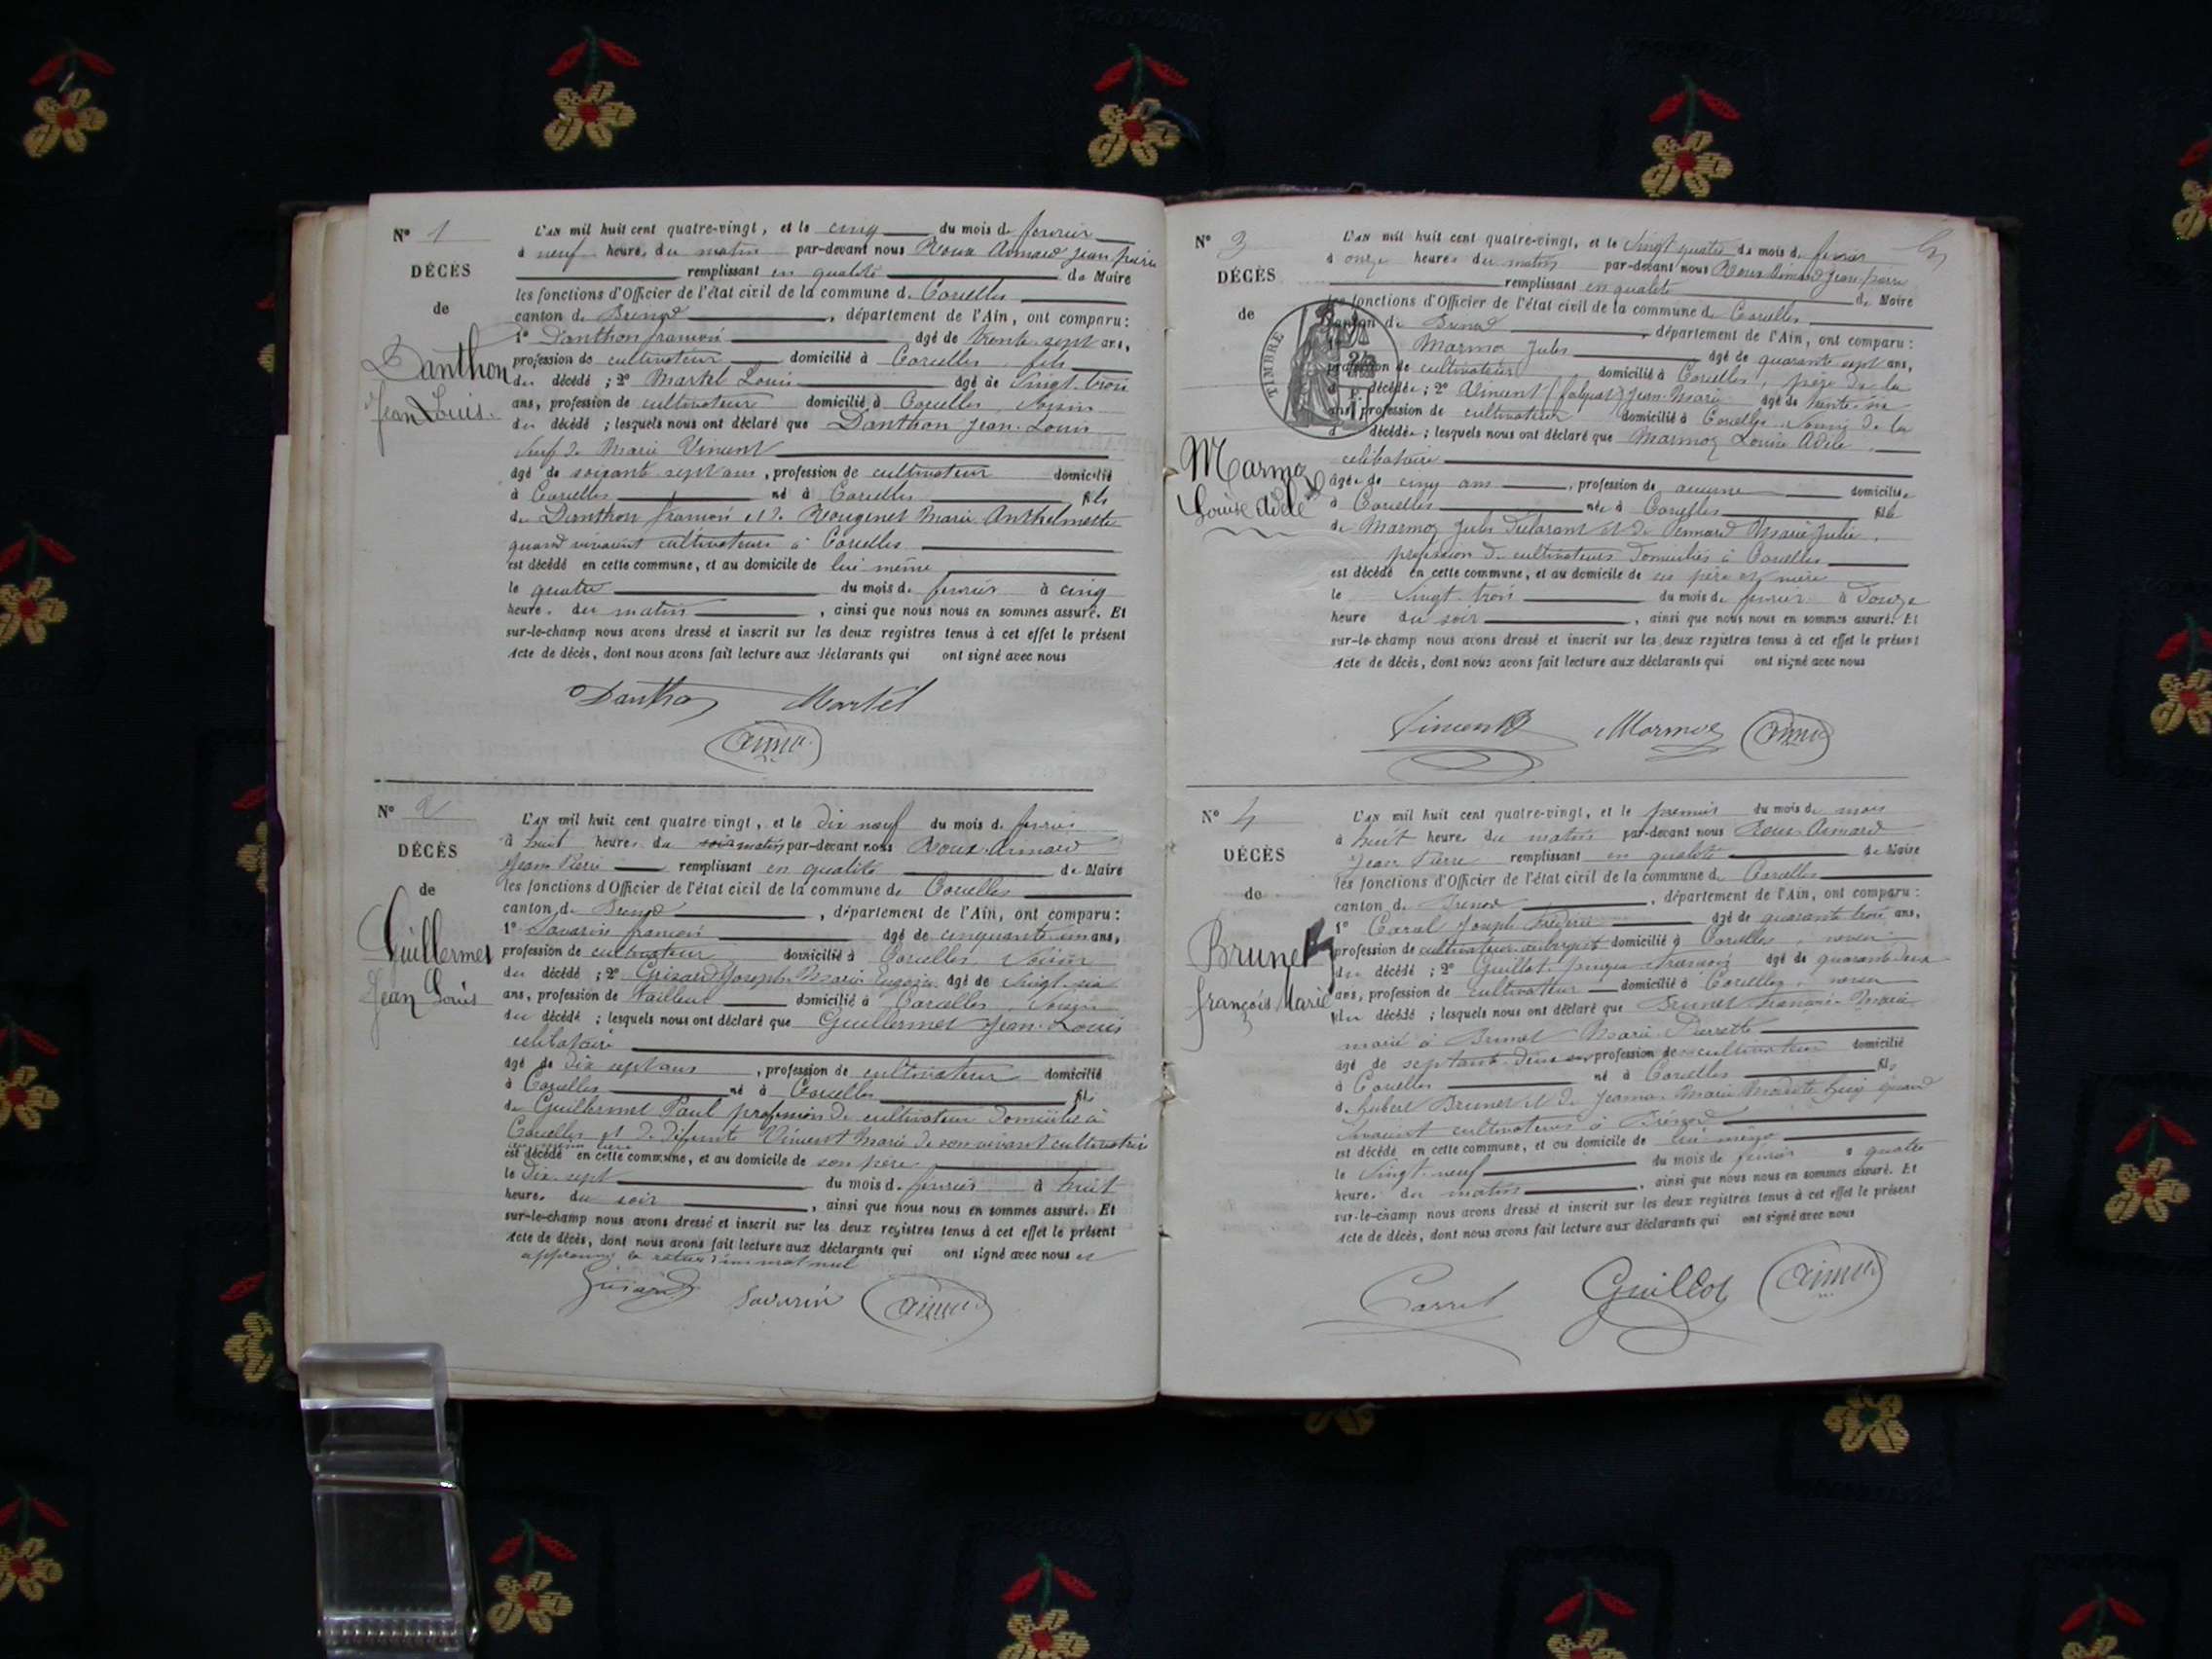 N° 1
DÉCÈS
de
Danthon
Jean Louis.
L'AN mil huit cent quatre-vingt, et le cinq du mois de fevrier
à neuf heures du matin par-devant nous Roux Aimard jean pierre
remplissant en qualité de Maire
les fonctions d'Officier de l'état civil de la commune de Corcelles
canton de Brenod, département de l'Ain, ont comparu :
1° Danthon françois âgé de trente-sept ans,
profession de cultivateur domicilié à Corcelles, fils
du décédé ; 2° Martel Louis âgé de vingt-trois
ans, profession de cultivateur domicilié à Corcelles, voisin
du décédé ; lesquels nous ont déclaré que Danthon Jean-Louis
veuf de Marie Vincent
âgé de soixante sept ans, profession de cultivateur domicilié
à Corcelles né à Corcelles fils
de Danthon françois et de Marie
quand vivaient cultivateurs à Corcelles
est décédé en cette commune, et au domicile de lui même
le quatre du mois de fevrier à cinq
heures du matin, ainsi que nous nous en sommes assuré. Et
sur-le-champ nous avons dressé et inscrit sur les deux registres tenus à cet effet le présent
acte de décès, dont nous avons fait lecture aux déclarants qui ont signé avec nous
Danthon Martel
N° 2
DÉCÈS
de
Guillermet
Jean Louis
L'AN mil huit cent quatre-vingt, et le dix neuf du mois de fevrier
à huit heures du soir matin par-devant nous Roux Aimard
Jean Pierre remplissant en qualité de Maire
les fonctions d'Officier de l'état civil de la commune de Corcelles
canton de Brenod, département de l'Ain, ont comparu :
1° Savarin françois âgé de cinquante-un ans,
profession de cultivateur domicilié à Corcelles, voisin
du décédé ; 2° Grisard Joseph-Marie Eugène âgé de vingt-six
ans, profession de tailleur domicilié à Corcelles, voisin
du décédé ; lesquels nous ont déclaré que Guillermet Jean-Louis
célibataire
âgé de dix sept ans, profession de cultivateur domicilié
à Corcelles né à Corcelles fils
de Guillermet Paul profession de cultivateur domicilié à
Corcelles et de défunte Vincent Marie de son vivant cultivatrice
est décédé en cette commune, et au domicile de son père
le dix-sept du mois de fevrier à huit
heures du soir, ainsi que nous nous en sommes assuré. Et
sur-le-champ nous avons dressé et inscrit sur les deux registres tenus à cet effet le présent
acte de décès, dont nous avons fait lecture aux déclarants qui ont signé avec nous et
approuvé la rature d'un mot nul
Grisard Savarin
N° 3
DÉCÈS
de
Marmoz
Louise Adèle
TIMBRE
L'AN mil huit cent quatre-vingt, et le vingt quatre du mois de fevrier
à onze heures du matin par-devant nous Roux Aimard Jean pierre
remplissant en qualité de Maire
les fonctions d'Officier de l'état civil de la commune de Corcelles
canton de Brenod, département de l'Ain, ont comparu :
Marmoz Jules âgé de quarante sept ans,
profession de cultivateur domicilié à Corcelles, père de la
décédée ; 2° Vincent Jean-Marie âgé de trente-six
ans, profession de cultivateur domicilié à Corcelles voisin de la
décédée ; lesquels nous ont déclaré que Marmoz Louise Adèle,
célibataire
âgée de cinq ans, profession de aucune domiciliée
à Corcelles née à Corcelles fille
de Marmoz Jules déclarant et de Marie Julie,
profession de cultivateurs domiciliés à Corcelles
est décédé en cette commune, et au domicile de ses père et mère
le vingt-trois du mois de fevrier à douze
heure du soir, ainsi que nous nous en sommes assuré. Et
sur-le-champ nous avons dressé et inscrit sur les deux registres tenus à cet effet le présent
acte de décès, dont nous avons fait lecture aux déclarants qui ont signé avec nous
Vincent Marmoz
N° 4
DÉCÈS
de
Brunet
françois Marie
L'AN mil huit cent quatre-vingt, et le premier du mois de mars
à huit heures du matin par-devant nous Roux Aimard
Jean Pierre remplissant en qualité de Maire
les fonctions d'Officier de l'état civil de la commune de Corcelles
canton de Brenod, département de l'Ain, ont comparu :
1° Carrel Joseph Frédéric âgé de quarante trois ans,
profession de cultivateur-aubergiste domicilié à Corcelles, neveu
du décédé ; 2° Guillot françois âgé de quarante-deux
ans, profession de cultivateur domicilié à Corcelles, neveu
du décédé ; lesquels nous ont déclaré que Brunet François-Marie
marié à Brunet Marie-Pierrette
âgé de septante-deux ans profession de cultivateur domicilié
à Corcelles né à Corcelles fils
d'hubert Brunet et de Jeanne-Marie quand
vivaient cultivateurs à Brénod
est décédé en cette commune, et au domicile de lui même
le vingt-neuf du mois de fevrier à quatre
heures du matin, ainsi que nous nous en sommes assuré. Et
sur-le-champ nous avons dressé et inscrit sur les deux registres tenus à cet effet le présent
acte de décès, dont nous avons fait lecture aux déclarants qui ont signé avec nous
Carrel Guillot